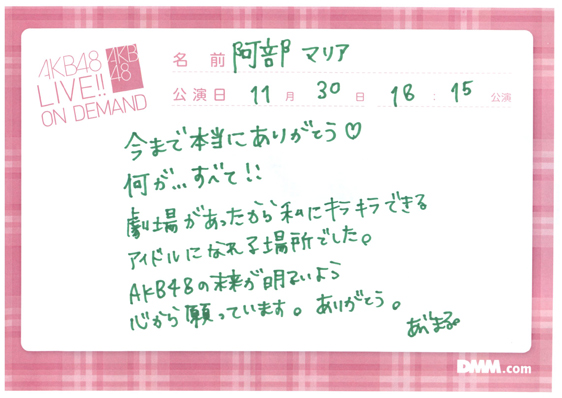 AKB48
LIVE!!
ON DEMAND
AKB
48
名 前 阿部 マリア
公演日 11 月 30 日 18 : 15 公演
今まで本当にありがとう♡
何が...すべて!!
劇場があったから私にキラキラできる
アイドルになれる場所でした。
AKB48の未来が明るいよう
心から願っています。ありがとう。
あぶまる。
DMM.com